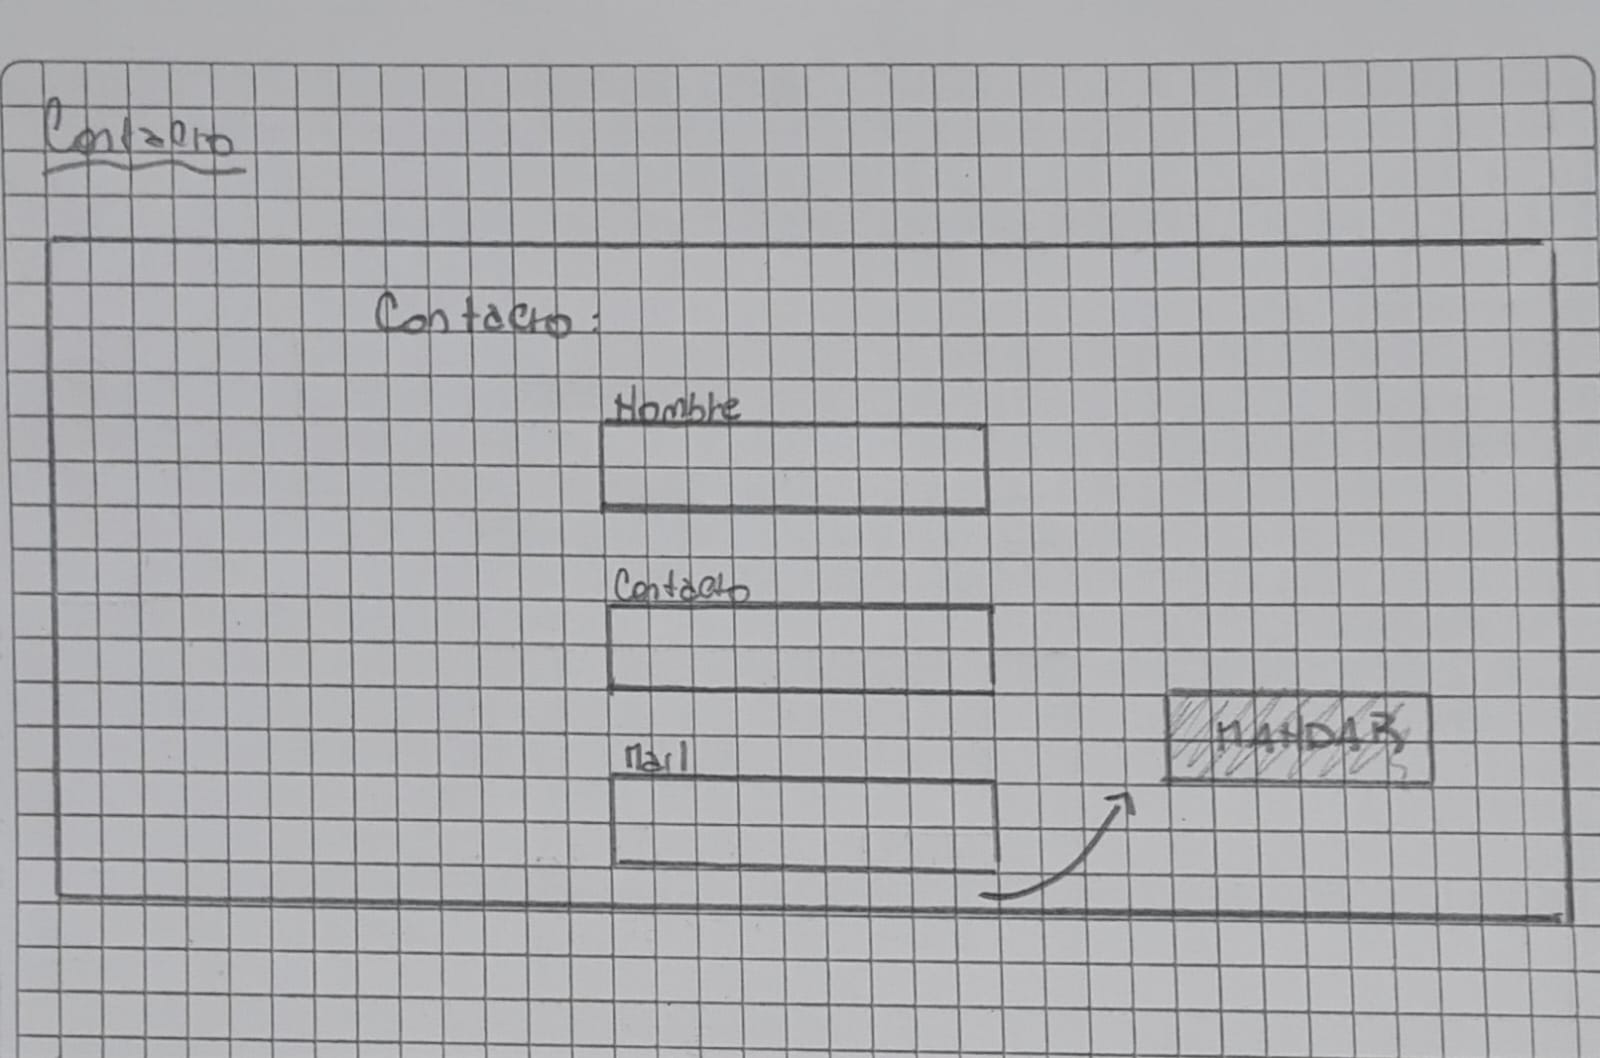 Contacto
Contacto:
Nombre
Contacto
Mail
MANDAR